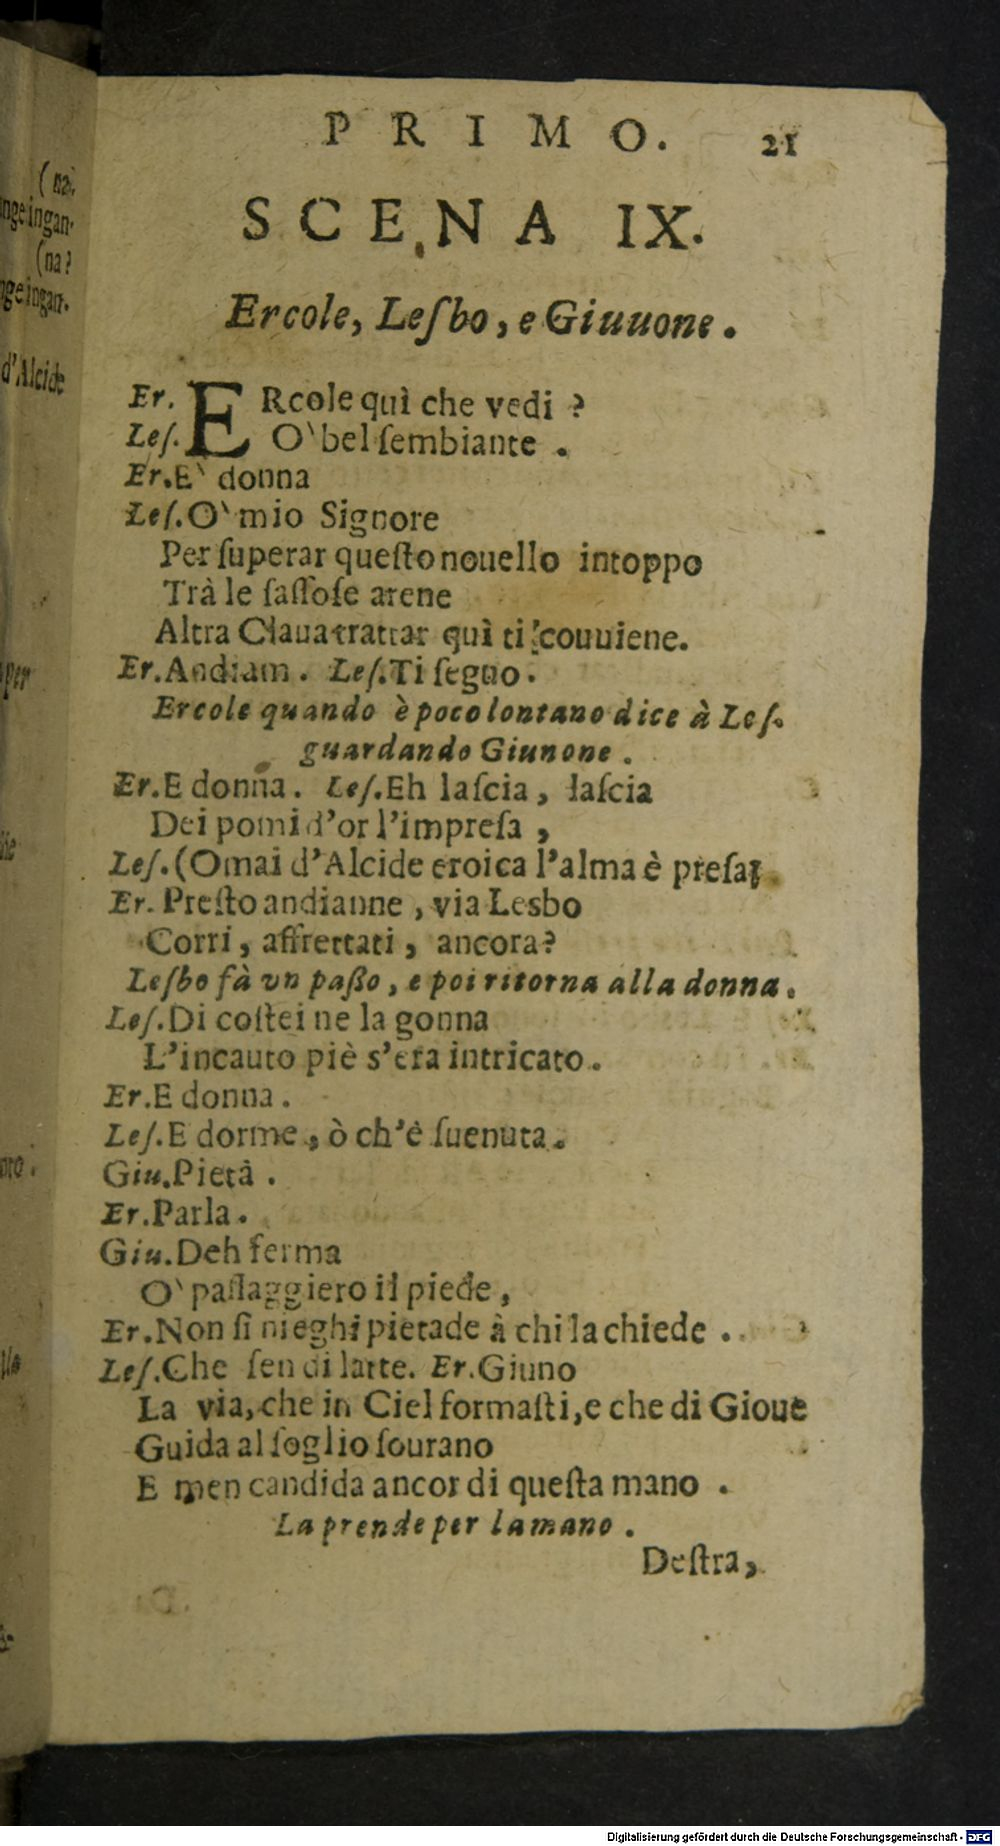 PRIMO. 21
SCENA IX.
Ercole, Leſbo, e Giuuone.
Er. ERcole quì che vedi ?
Leſ. O` bel ſembiante .
Er. E` donna
Leſ. O` mio Signore
Per ſuperar queſto nouello intoppo
Trà le ſaſſoſe arene
Altra Claua trattar quì ti couuiene.
Er. Andiam . Leſ. Ti ſeguo .
Ercole quando è poco lontano dice à Leſ.
guardando Giunone .
Er. E donna . Leſ. Eh laſcia , laſcia
Dei pomi d'or l'impreſa ,
Leſ. (Omai d'Alcide eroica l'alma è preſa
Er. Preſto andianne , via Lesbo
Corri , affrettati , ancora?
Leſbo fà vn paßo , e poi ritorna alla donna .
Leſ. Di coſtei ne la gonna
L'incauto piè s'era intricato .
Er. E donna .
Leſ. E dorme , ò ch'è ſuenuta .
Giu. Pietà .
Er. Parla .
Giu. Deh ferma
O` paſſaggiero il piede ,
Er. Non ſi nieghi pietade à chi la chiede .
Leſ. Che ſen di latte. Er. Giuno
La via, che in Ciel formaſti, e che di Gioue
Guida al ſoglio ſourano
E men candida ancor di queſta mano .
La prende per la mano .
Deſtra ,
(na,
inge ingan-
(na?
nge ingan-
d'Alcide
per
Digitalisierung gefördert durch die Deutsche Forschungsgemeinschaft - DFG